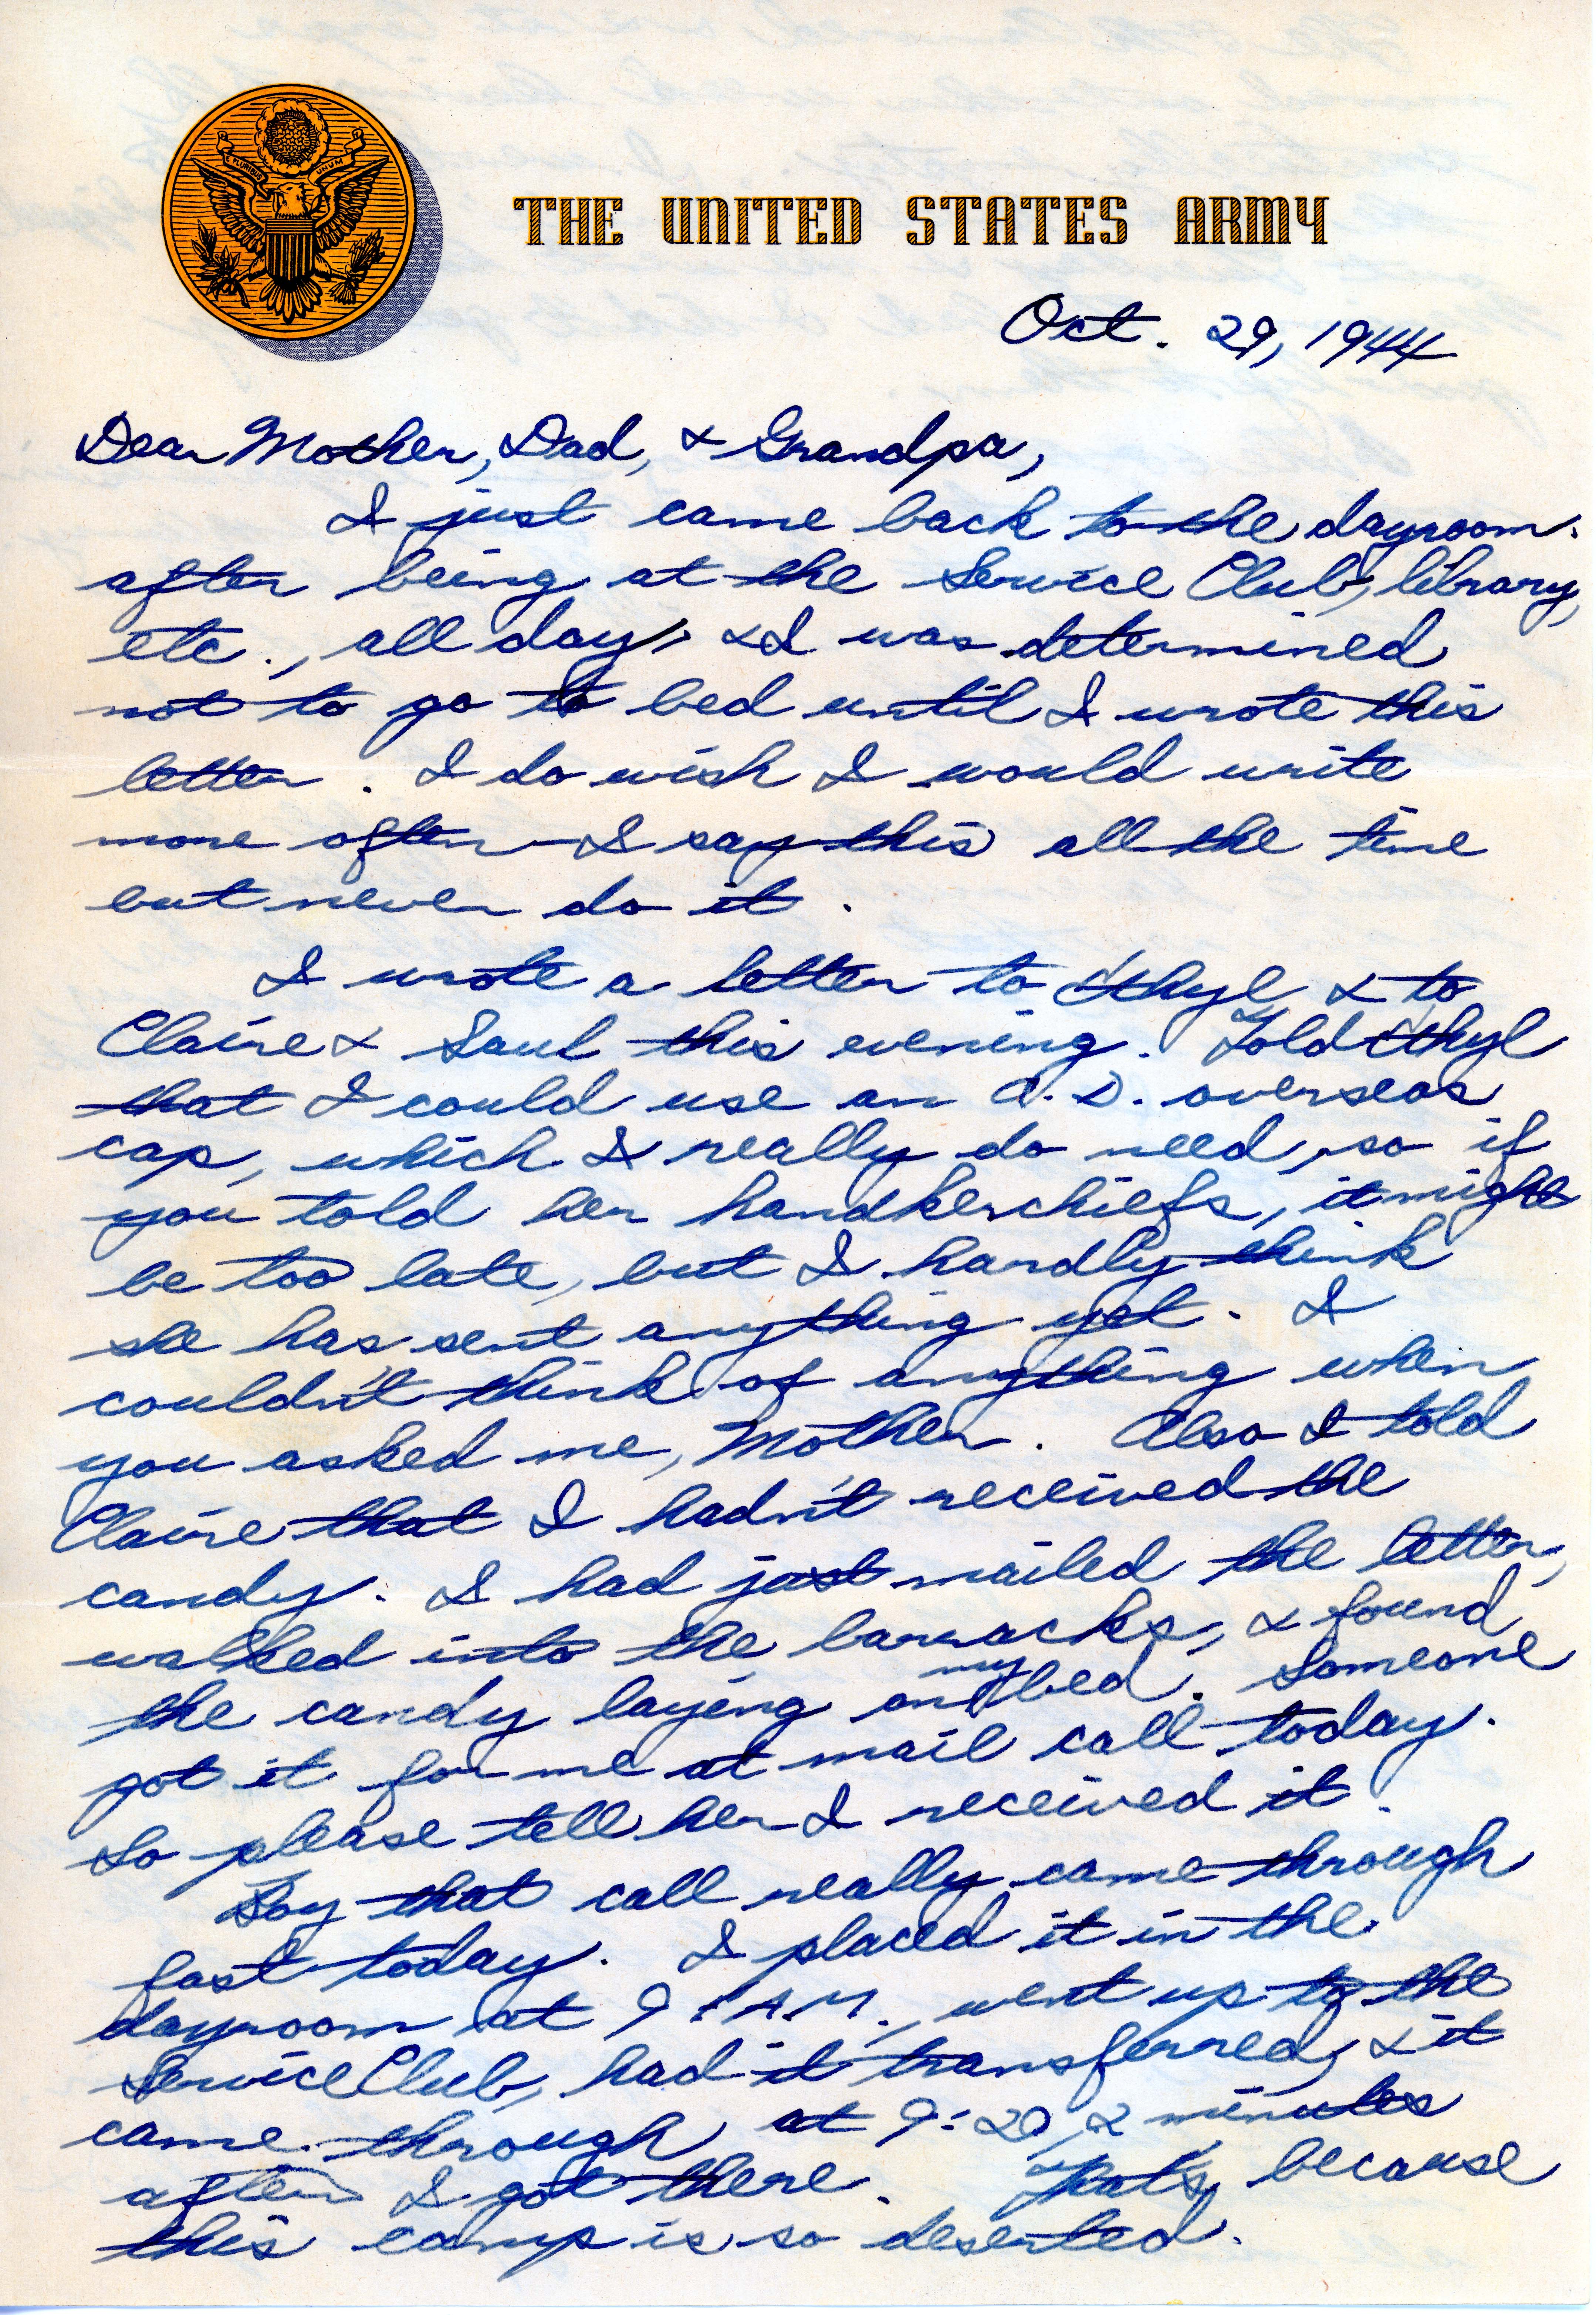 E PLURIBUS UNUM
THE UNITED STATES ARMY
Oct. 29, 1944
Dear Mother, Dad, & Grandpa,
I just came back to the dayroom
after being at the Service Club, library,
etc., all day, & I was determined
not to go to bed until I wrote this
letter. I do wish I would write
more often – I say this all the time
but never do it.
I wrote a letter to Ethyl & to
Claire & Saul this evening. Told Ethyl
that I could use an O.D. overseas
cap, which I really do need, so if
you told her handkerchiefs, it might
be too late, but I hardly think
she has sent anything yet. I
couldn't think of anything when
you asked me, Mother. Also I told
Claire that I hadn't received the
candy. I had just mailed the letter,
walked into the barracks, & found
the candy laying on my bed. Someone
got it for me at mail call today.
So please tell her I received it.
Boy that call really came through
fast today. I placed it in the
dayroom at 9 A.M., went up to the
Service Club, had it transferred, & it
came through at 9:20, 2 minutes
after I got there. That's because
this camp is so deserted.